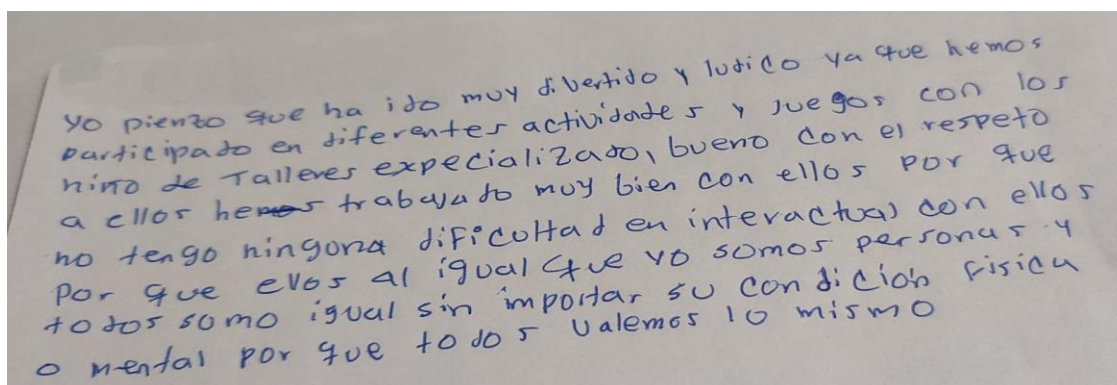 yo pienzo que ha ido muy divertido y ludico ya que hemos
participado en diferentes actividades y juegos con los
niño de Talleres expecializado, bueno con el respeto
a ellos hemos trabajado muy bien con ellos por que
no tengo ninguna dificultad en interactual con ellos
por que ellos al igual que yo somos personas y
todos somo igual sin importar su condición fisica
o mental por que todos valemos lo mismo